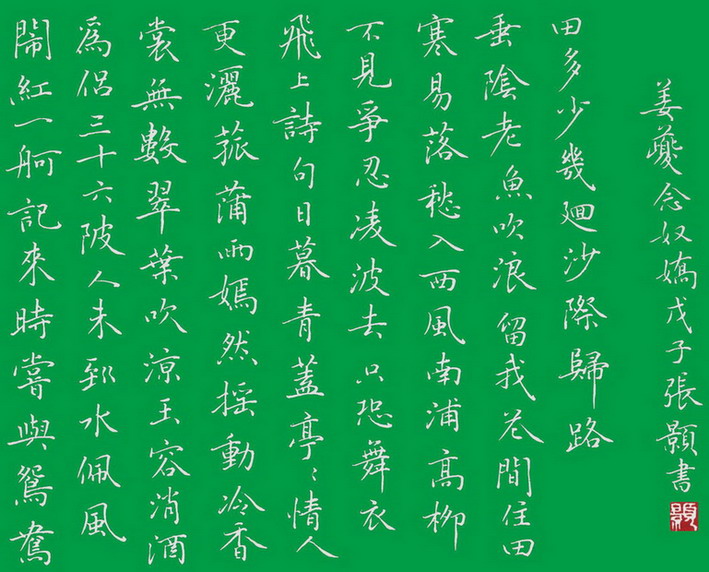 鬧紅一舸記來時嘗與鴛鴦
爲侶三十六陂人未到水佩風
裳無數翠葉吹涼玉容消酒
更灑菰蒲雨嫣然搖動冷香
飛上詩句日暮青蓋亭〻情人
不見爭忍凌波去只恐舞衣
寒易落愁入西風南浦高柳
垂陰老魚吹浪留我花間住田
田多少幾迴沙際歸路
姜夔念奴嬌戊子張顥書
顥